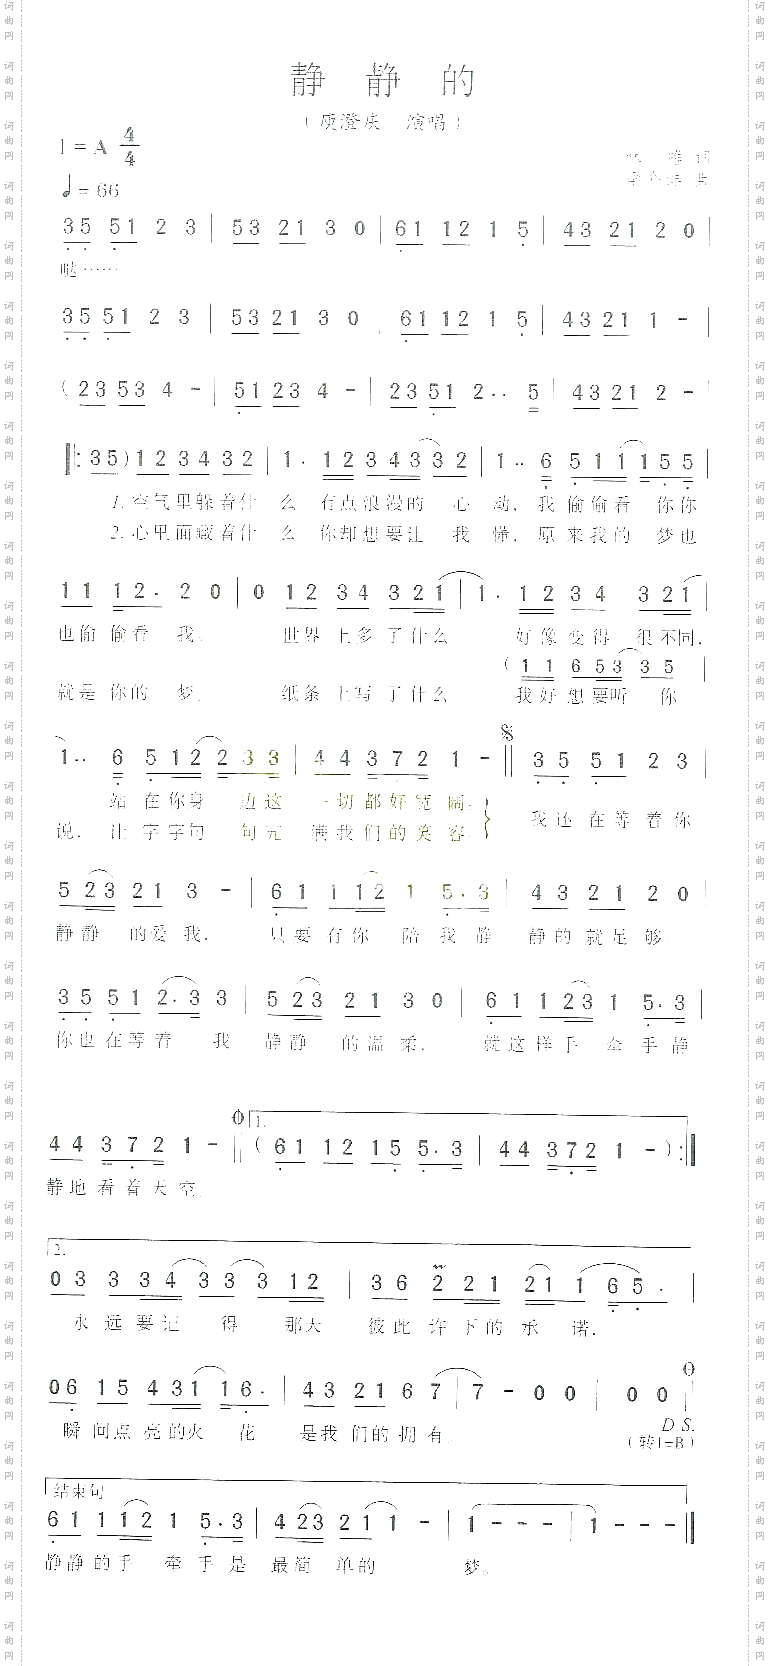 静 静 的
（庾澄庆 演唱）
1 = A 4/4
♩ = 66
3 5 5 1 2 3 | 5 3 2 1 3 0 | 6 1 1 2 1 5 | 4 3 2 1 2 0
哒……
3 5 5 1 2 3 | 5 3 2 1 3 0 6 1 1 2 1 5 | 4 3 2 1 1 -
( 2 3 5 3 4 - | 5 1 2 3 4 - | 2 3 5 1 2 · · 5 | 4 3 2 1 2 -
‖: 3 5 ) 1 2 3 4 3 2 | 1 · 1 2 3 4 3 3 2 | 1 · · 6 5 1 1 1 5 5 |
1. 空气里躲着什 么 有点浪漫的 心 动，我 偷偷看 你你
2. 心里面藏着什 么 你却想要让 我 懂，原 来我的 梦也
1 1 1 2 · 2 0 | 0 1 2 3 4 3 2 1 | 1 · 1 2 3 4 3 2 1 |
也偷 偷看 我， 世界 上多了什么 好像变得 很不同，
( 1 1 6 5 3 3 5 |
就是 你的 梦， 纸条 上写了什么 我好想要听 你
1 · · 6 5 1 2 2 3 3 | 4 4 3 7 2 1 - ‖ 3 5 5 1 2 3 |
站 在你身 边这 一切都好宽 阔。
说，让 字字句 句充 满我们的笑容。
我还在等着你
5 2 3 2 1 3 - | 6 1 1 1 2 1 5 · 3 | 4 3 2 1 2 0
静静 的爱我， 只要有你 陪我静 静的就足够
3 5 5 1 2 · 3 3 | 5 2 3 2 1 3 0 | 6 1 1 2 3 1 5 · 3 |
你也在等着 我 静静 的温柔， 就这样手 牵手静
4 4 3 7 2 1 - ‖ 1. ( 6 1 1 2 1 5 5 · 3 | 4 4 3 7 2 1 - ) :‖
静地看着天空。
2.
0 3 3 3 4 3 3 3 1 2 | 3 6 2 2 1 2 1 1 6 5 · |
永远要记 得 那天 彼此许下的承 诺，
0 6 1 5 4 3 1 1 6 · | 4 3 2 1 6 7 | 7 - 0 0 | 0 0
瞬间点亮的火 花 是我们的拥有。
D.S.
（转1=B）
结束句
6 1 1 1 2 1 5 · 3 | 4 2 3 2 1 1 - | 1 - - - | 1 - - - ‖
静静的手 牵手是 最简 单的 梦。
词曲网